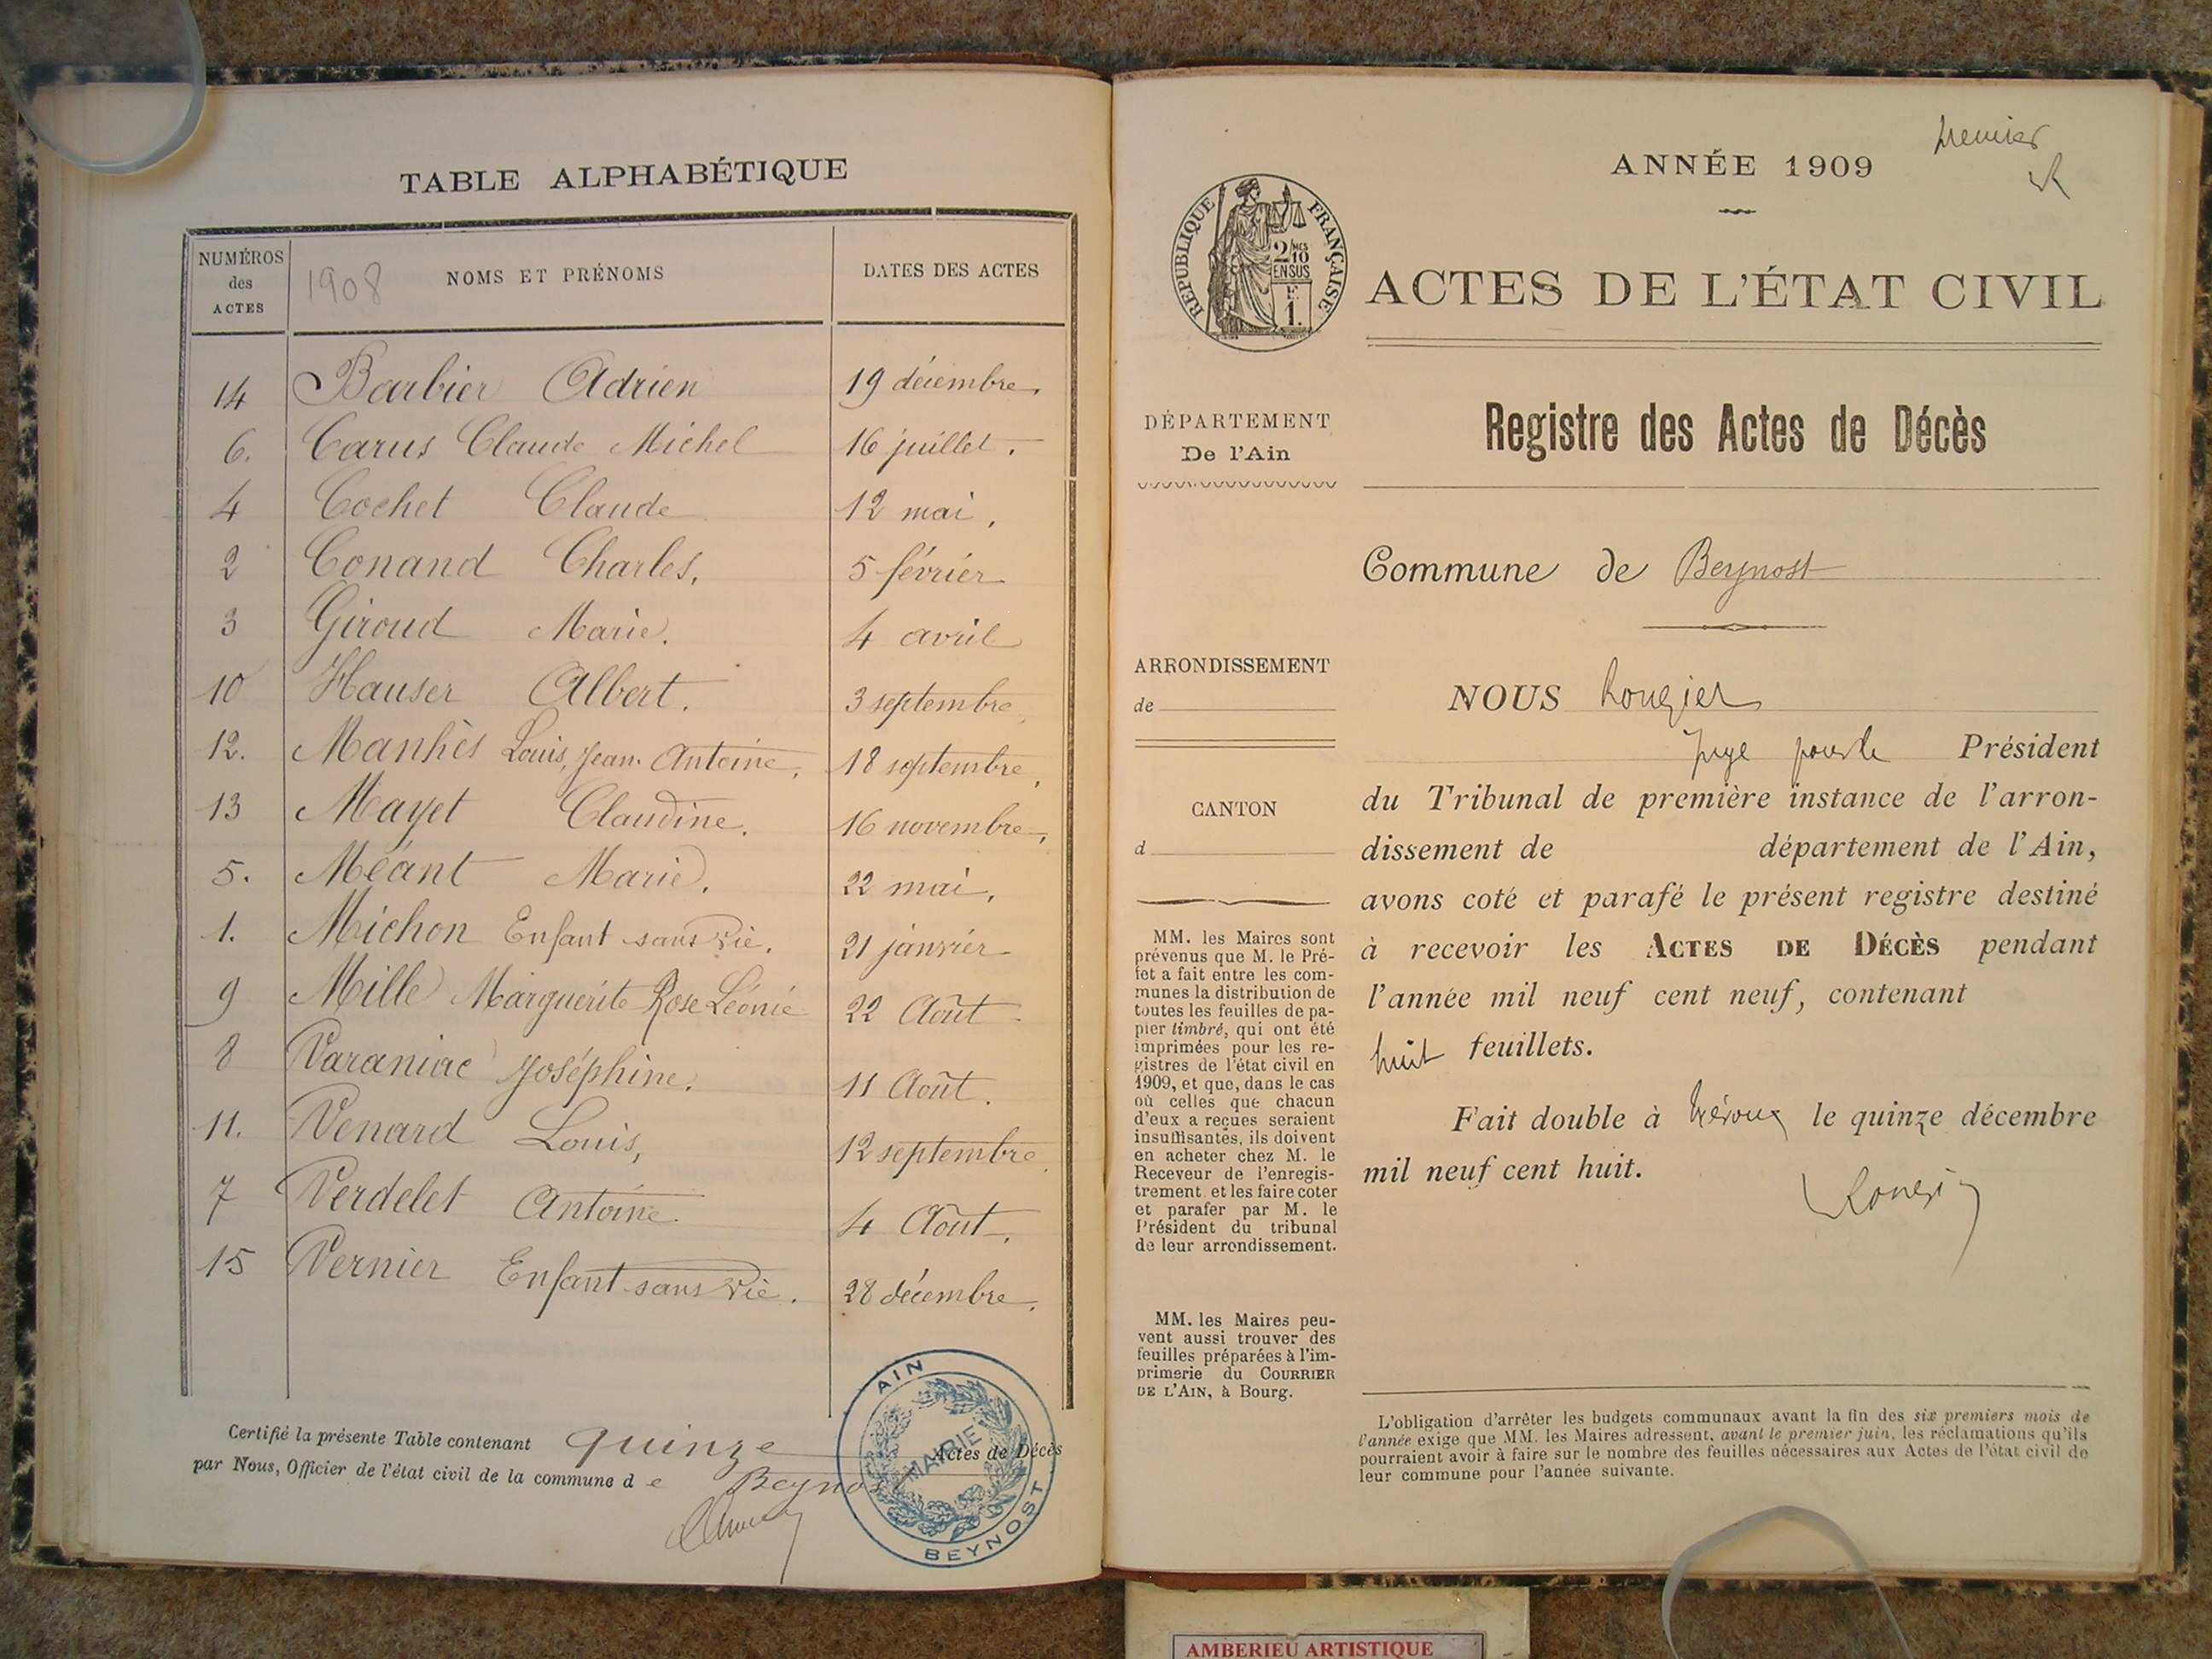 TABLE ALPHABÉTIQUE
NUMÉROS
des
ACTES
1908
NOMS ET PRÉNOMS
DATES DES ACTES
14 Barbier Adrien 19 décembre.
6. Carus Claude Michel 16 juillet.
4 Cochet Claude 12 mai,
2 Conand Charles, 5 février
3 Giroud Marie. 4 avril
10 Hauser Albert. 3 septembre,
12. Manhès Louis, Jean Antoine, 18 septembre,
13 Mayet Claudine. 16 novembre,
5. Méant Marie. 22 mai,
1. Michon Enfant sans vie. 21 janvier
9 Mille Marguerite Rose Léonie 22 Août
8 Varaniac Joséphine. 11 Août.
11. Venard Louis, 12 septembre.
7 Verdelet Antoine 4 Août.
15 Vernier Enfant sans vie. 28 décembre.
Certifié la présente Table contenant quinze Actes de Décès
par Nous, Officier de l'état civil de la commune de Beynost
AIN
MAIRIE
BEYNOST
premier
ANNÉE 1909
RÉPUBLIQUE FRANÇAISE
2/MES
10
EN SUS
F.
1.
ACTES DE L'ÉTAT CIVIL
DÉPARTEMENT
De l'Ain
Registre des Actes de Décès
Commune de Beynost
ARRONDISSEMENT
de
NOUS Rougier
juge pour le Président
du Tribunal de première instance de l'arron-
dissement de département de l'Ain,
avons coté et parafé le présent registre destiné
à recevoir les ACTES DE DÉCÈS pendant
l'année mil neuf cent neuf, contenant
huit feuillets.
Fait double à Trévoux le quinze décembre
mil neuf cent huit.
Rougier
CANTON
d
MM. les Maires sont
prévenus que M. le Pré-
fet a fait entre les com-
munes la distribution de
toutes les feuilles de pa-
pier timbré, qui ont été
imprimées pour les re-
gistres de l'état civil en
1909, et que, dans le cas
où celles que chacun
d'eux a reçues seraient
insuffisantes, ils doivent
en acheter chez M. le
Receveur de l'enregis-
trement et les faire coter
et parafer par M. le
Président du tribunal
de leur arrondissement.
MM. les Maires peu-
vent aussi trouver des
feuilles préparées à l'im-
primerie du COURRIER
DE L'AIN, à Bourg.
L'obligation d'arrêter les budgets communaux avant la fin des six premiers mois de
l'année exige que MM. les Maires adressent, avant le premier juin, les réclamations qu'ils
pourraient avoir à faire sur le nombre des feuilles nécessaires aux Actes de l'état civil de
leur commune pour l'année suivante.
AMBERIEU ARTISTIQUE